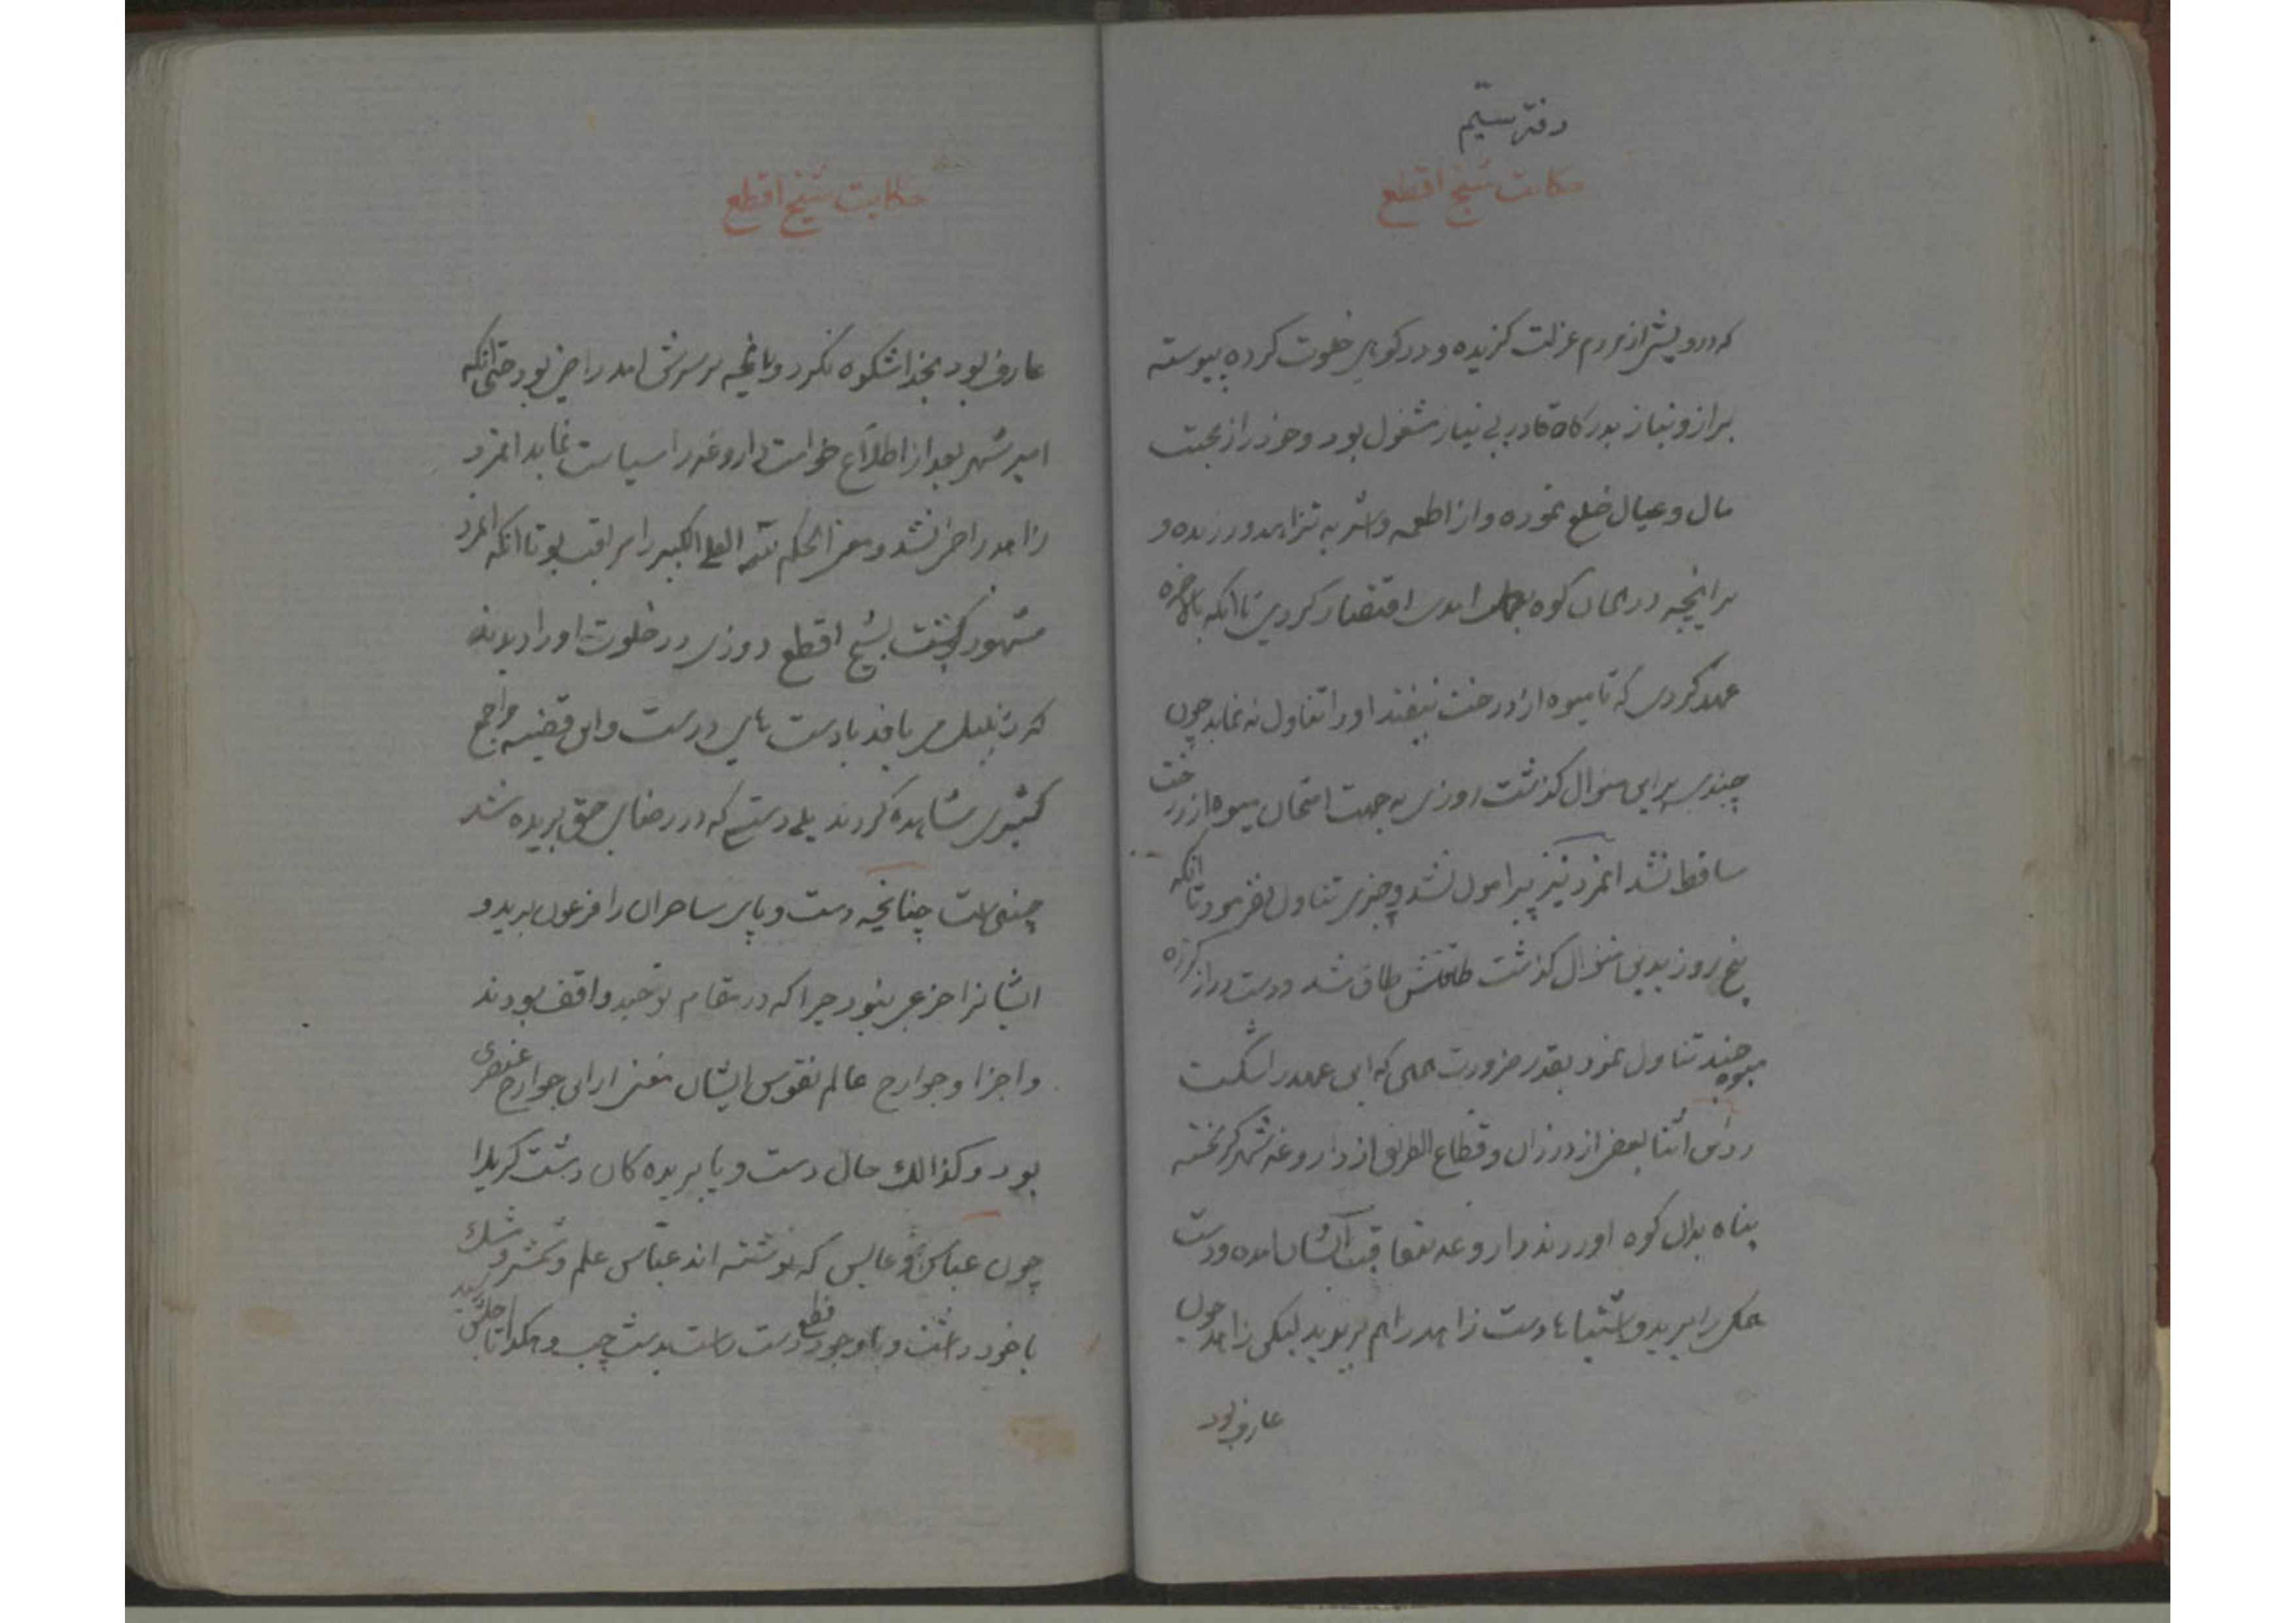 دفتر سیّم
حکایت شیخ اقطع
که درویشی از مردم عزلت گزیده و در کوهی خلوت کرده پیوسته
براز و نیاز بدرگاه قادر بی نیاز مشغول بود و خود را از محبت
مال و عیال خلع نموده و از اطعمه و اشربه تزاهد ورزیده و
برانچه در همان کوه امدی اقتصار کردی تا انکه بالاخره
عهد کردی که تا میوه از درخت نیفتد او را تناول نه نماید چون
چندی براین منوال گذشت روزی به جهت امتحان میوه از درخت
ساقط نشد انمرد نیز پیرامون نشد و چیزی تناول نفرمود تا انکه
پنج روز بدین منوال گذشت طاقتش طاق شد و دست دراز کرده
میوه چند تناول نمود بقدر ضرورت همی که این عهد را شکست
در این اثنا بعضی از دزدان و قطاع الطریق از داروغه شهر گریخته
پناه بدان کوه اوردند داروغه بتعاقب ایشان امده و دست
همکی را برید و اشتباها دست زاهد را هم برید لیکن زاهد چون
عارف بود
حکایت شیخ اقطع
عارف بود بخدا شکوه نکرد و بانچه بر سرش امد راضی بود حتی انکه
امیر شهر بعد از اطلاع خواست داروغه را سیاست نماید انمرد
زاهد راضی نشد و معنی الحکم للّه العلی الکبیر را مراقب بود تا انکه انمرد
مشهور گشت بشیخ اقطع روزی در خلوت او را دیدند
که زنبیل می بافد با دست های درست و این قضیه را جمع
کثیری مشاهده کردند بلی دستی که در رضای حق بریده شد
چنین است چنانچه دست و پای ساحران را فرعون برید و
ایشانرا جزعی نبود چرا که در مقام توحید واقف بودند
و اجزا و جوارح عالم نفوس ایشان مغنی از این جوارح عنصری
بود و کذالک حال دست و پا بریده کان دشت کربلا
چون عباس و عابس که نوشته اند عباس علم و شمشیر و مشک
با خود داشت و با وجود قطع دست راست بدست چپ و هکذا تا